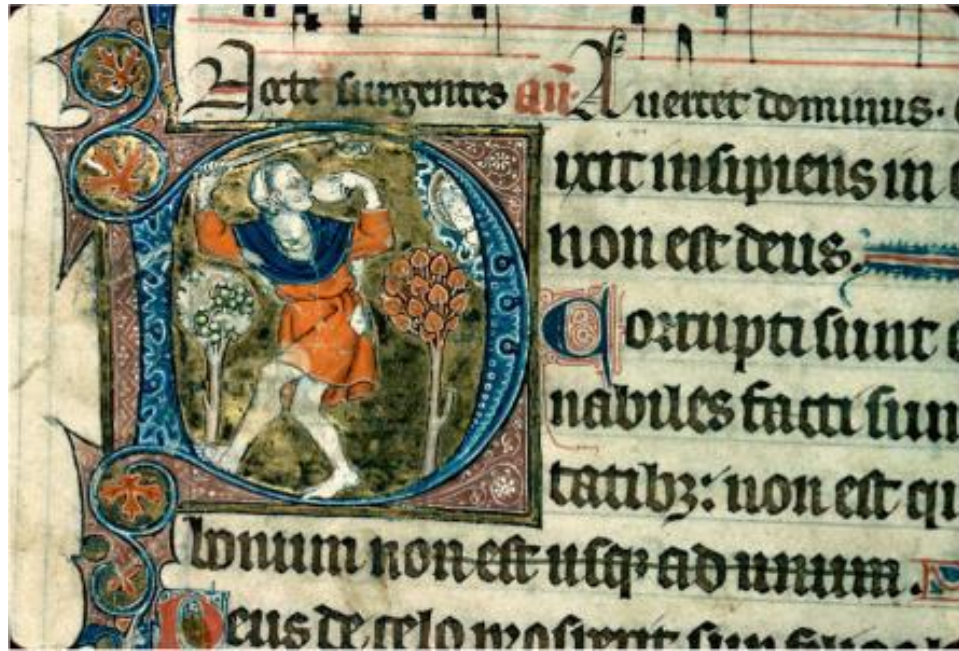 Nocte surgentes an̄. Auertet dominus.
Dixit insipiens in c
non est deus.
Corrupti sunt e
nabiles facti sun
tatibꝫ: non est qu
bonum non est usqꝫ ad unum.
Deus de celo prospexit sup filios